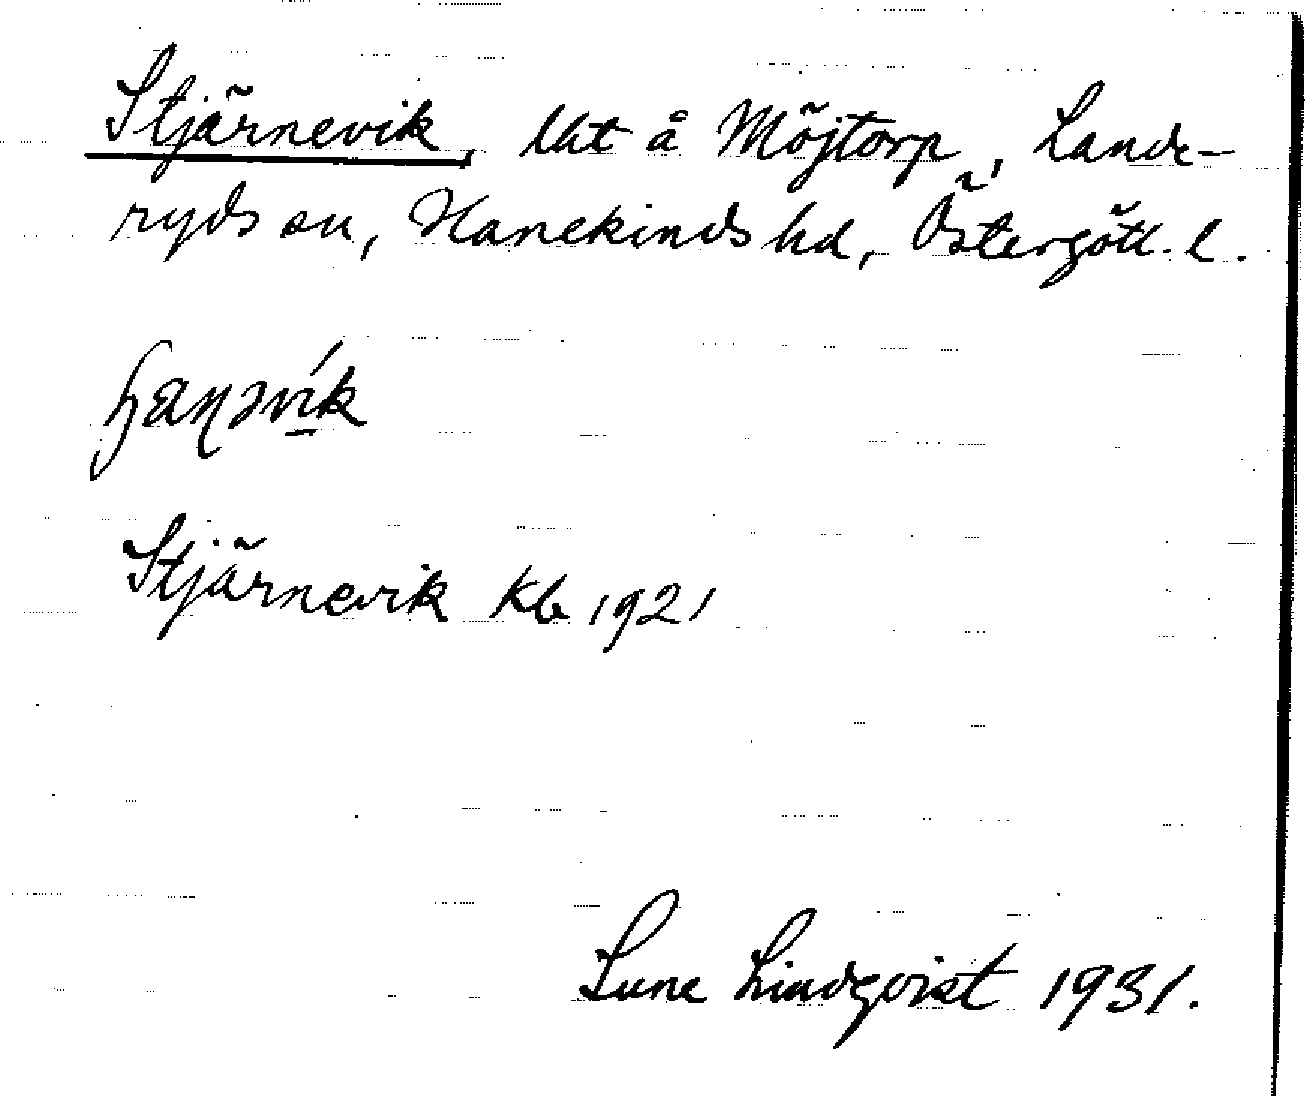 Stjärnevik, lht å Möjtorp, Lands-
ryds sn, Hanekinds hd, Östergötl. l.
Stjärnevik Kb 1921
Sune Lindqvist 1931.